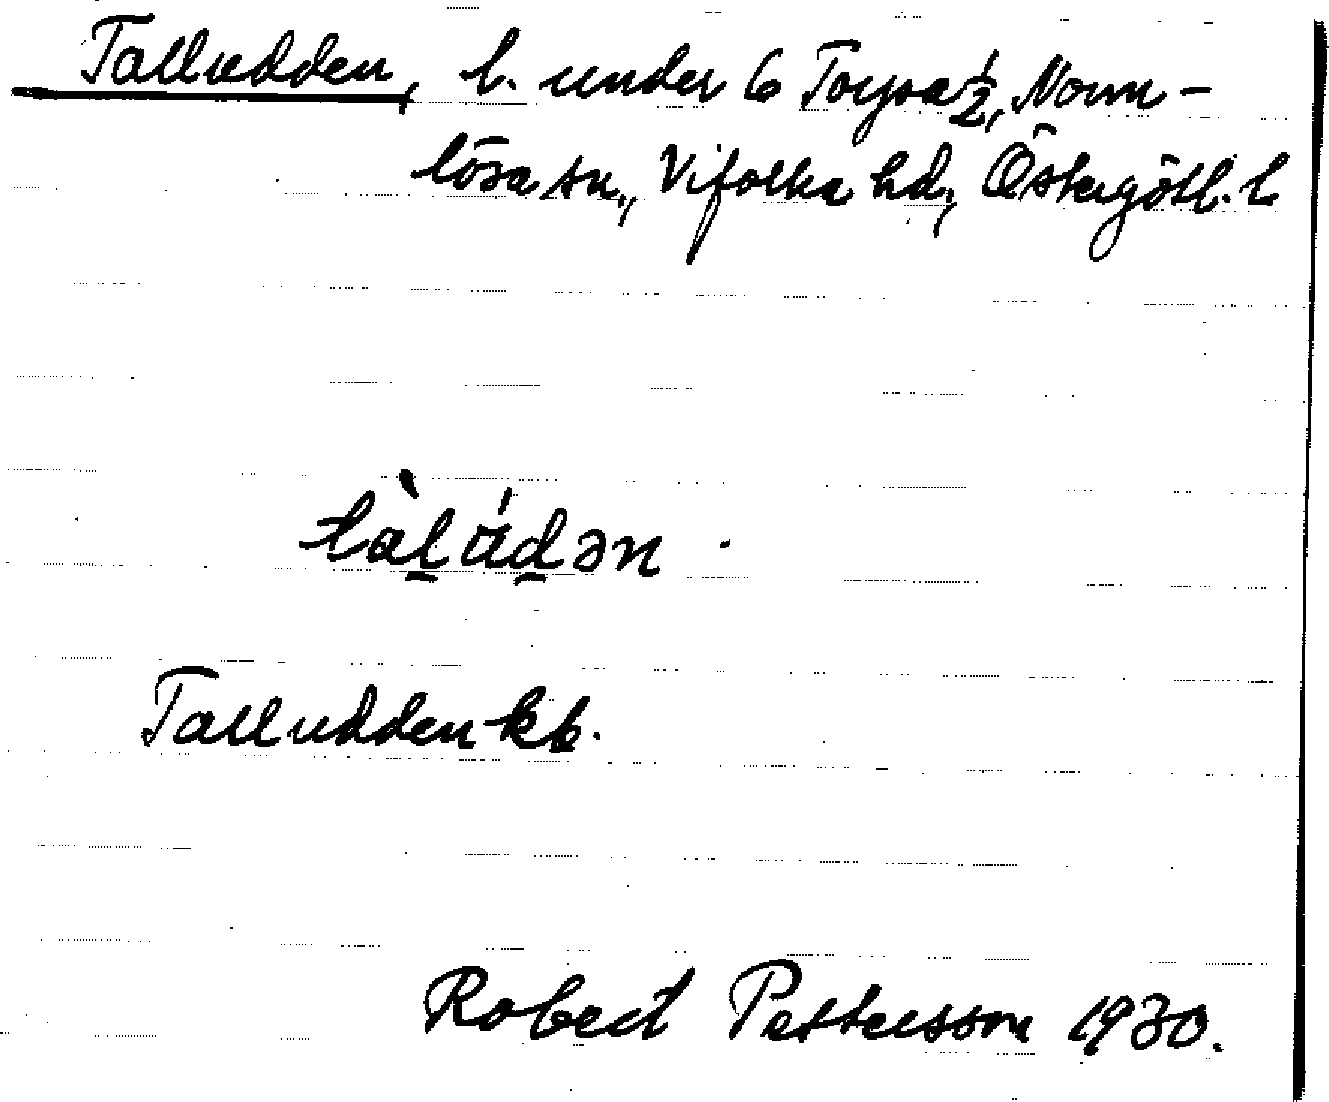 Talludden, l. under 6 Torpa ½, Norm-
lösa sn., Vifolka hd., Östergötl. l
Talludden kb.
Robert Pettersson 1930.